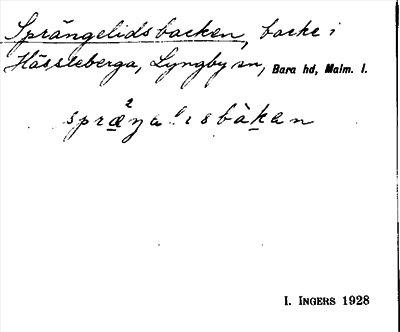 Sprängelidsbacken, backe i
Hässleberga, Lyngby sn, Bara hd, Malm. l.
I. INGERS 1928